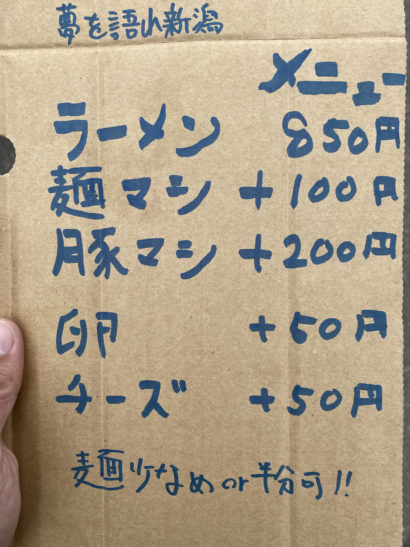 夢を語れ新潟
メニュー
ラーメン 850円
麺マシ +100円
豚マシ +200円
卵 +50円
チーズ +50円
麺少なめor半分可!!